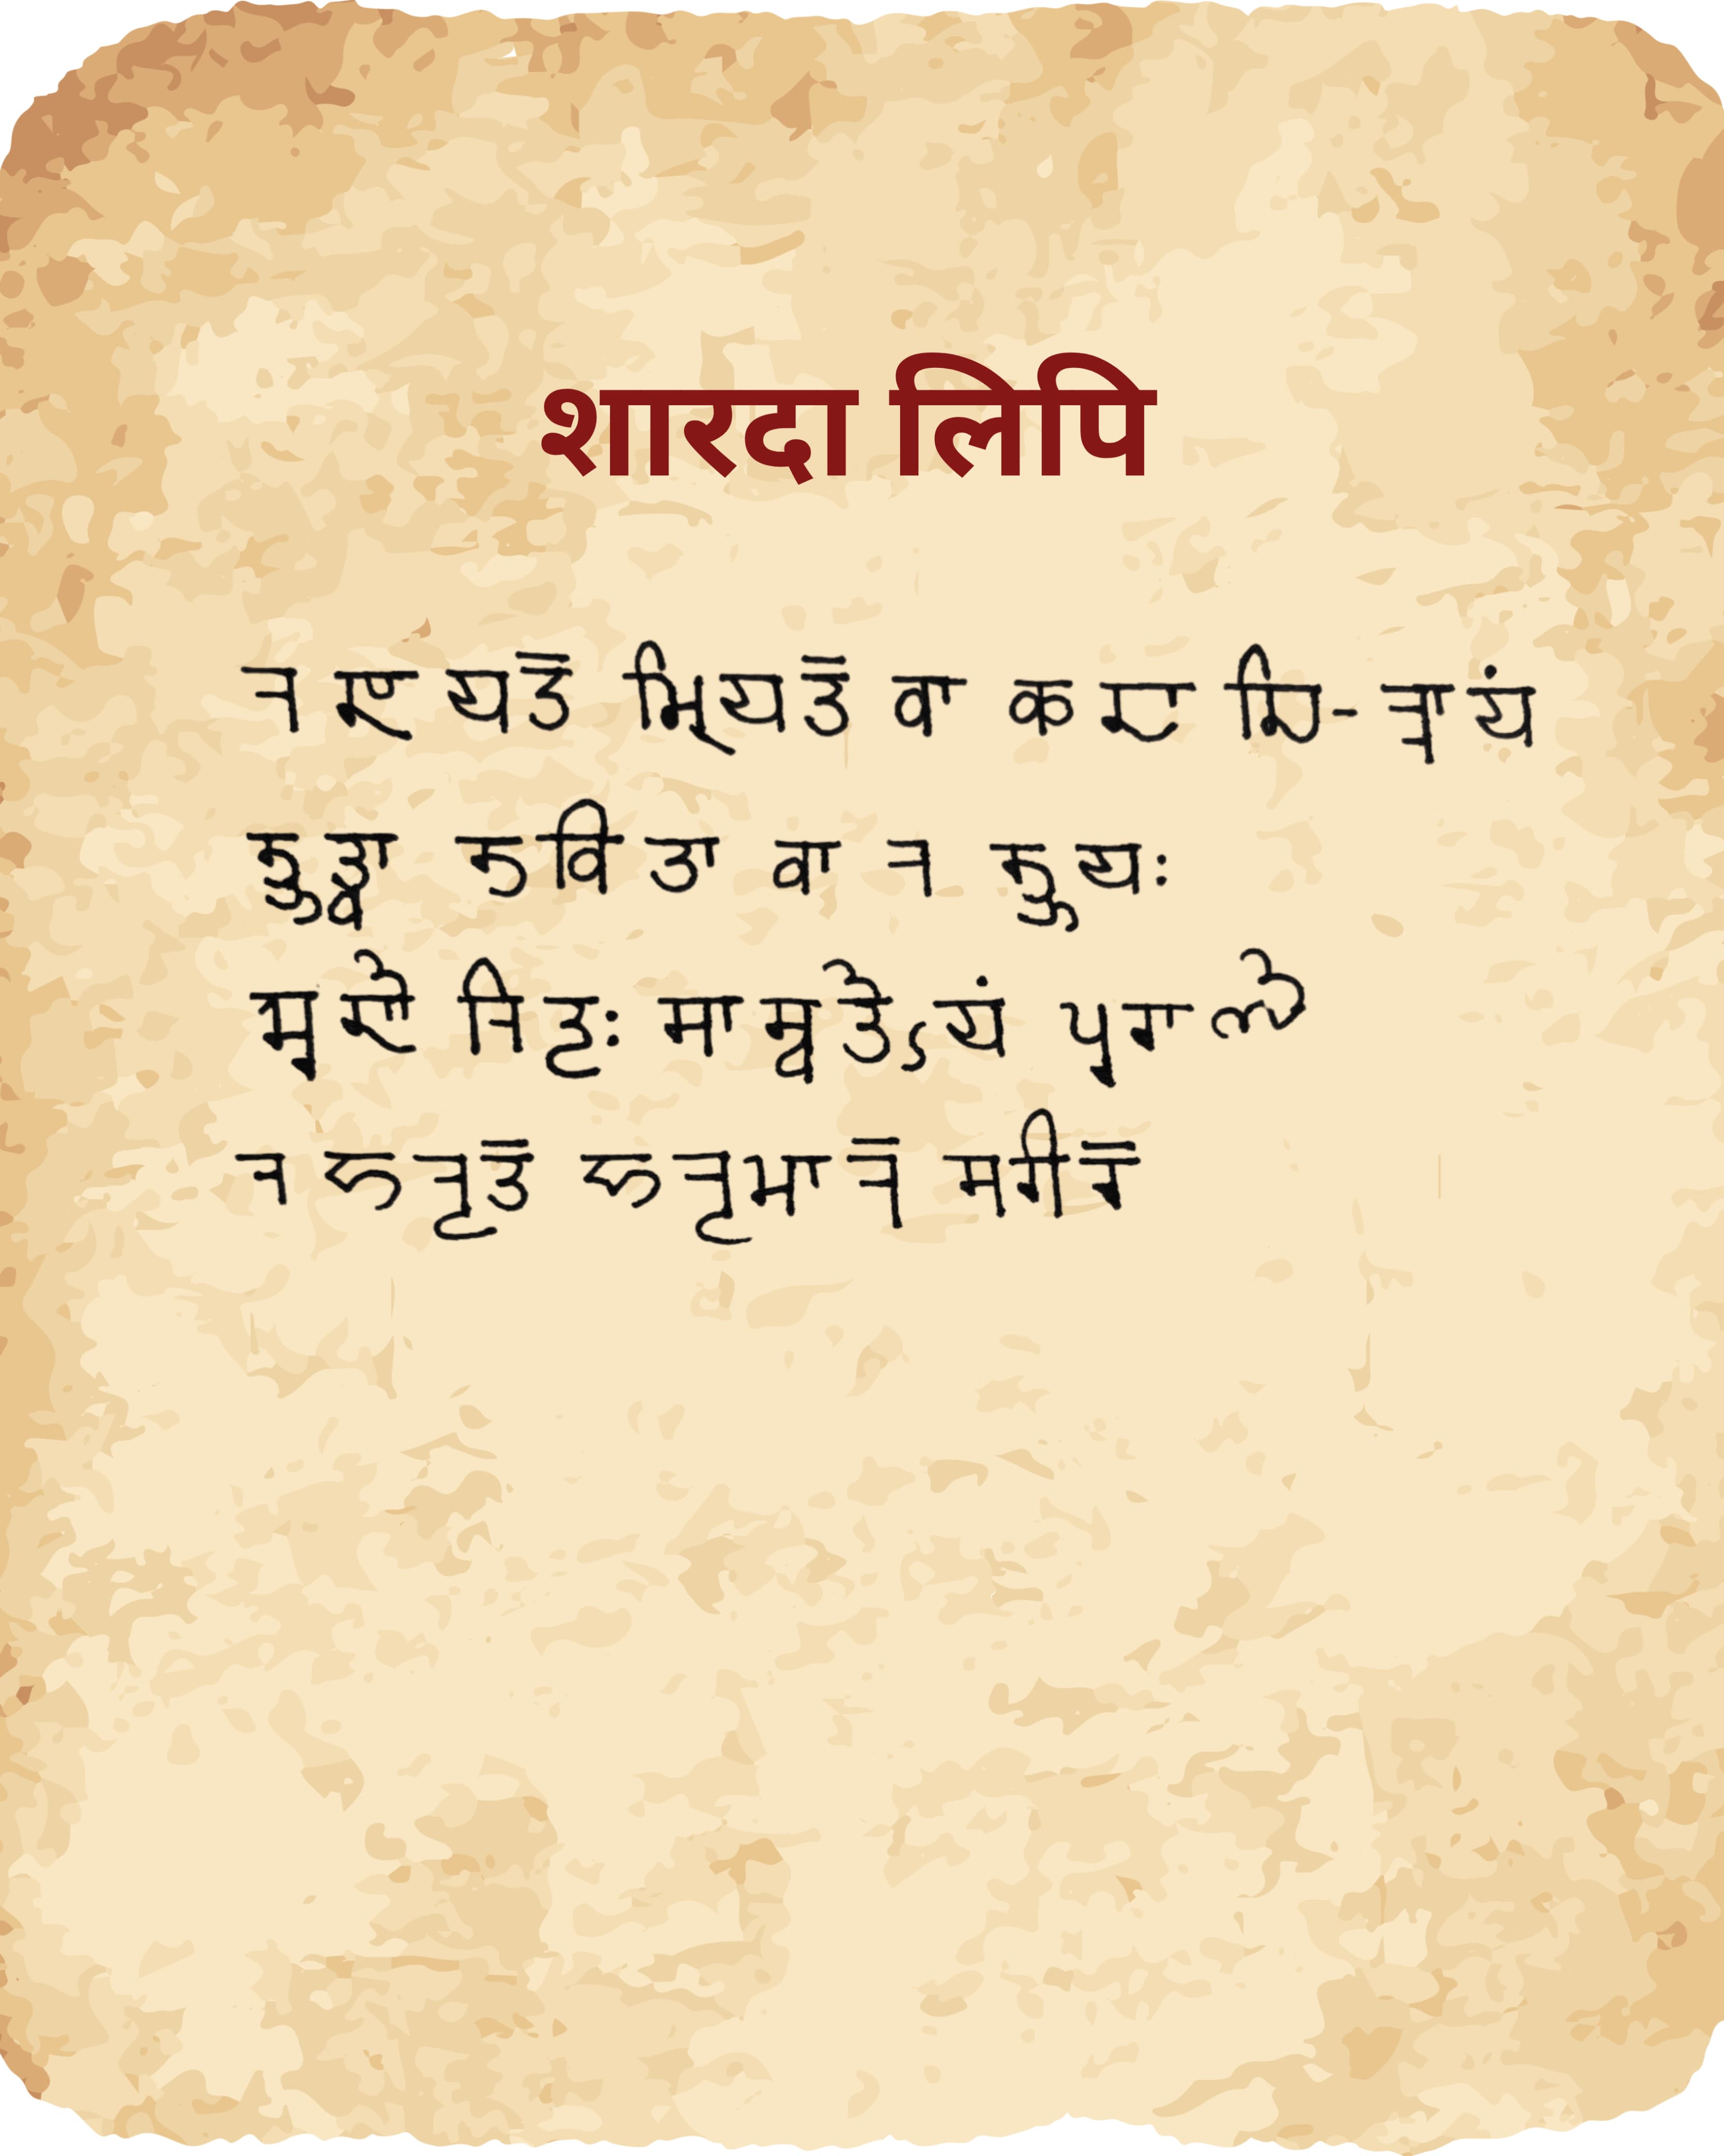 शारदा लिपि
𑆤 𑆘𑆳𑆪𑆠𑆼 𑆩𑇀𑆫𑆴𑆪𑆠𑆼 𑆮𑆳 𑆑𑆢𑆳𑆖𑆴-𑆤𑇀𑆤𑆳𑆪𑆁
𑆨𑆷𑆠𑇀𑆮𑆳 𑆨𑆮𑆴𑆠𑆳 𑆮𑆳 𑆤 𑆨𑆷𑆪𑆂
𑆃𑆘𑆾 𑆤𑆴𑆠𑇀𑆪𑆂 𑆯𑆳𑆯𑇀𑆮𑆠𑆾𑇁𑆪𑆁 𑆥𑆶𑆫𑆳𑆟𑆾
𑆤 𑆲𑆤𑇀𑆪𑆠𑆼 𑆲𑆤𑇀𑆪𑆩𑆳𑆤𑆼 𑆯𑆫𑆵𑆫𑆼